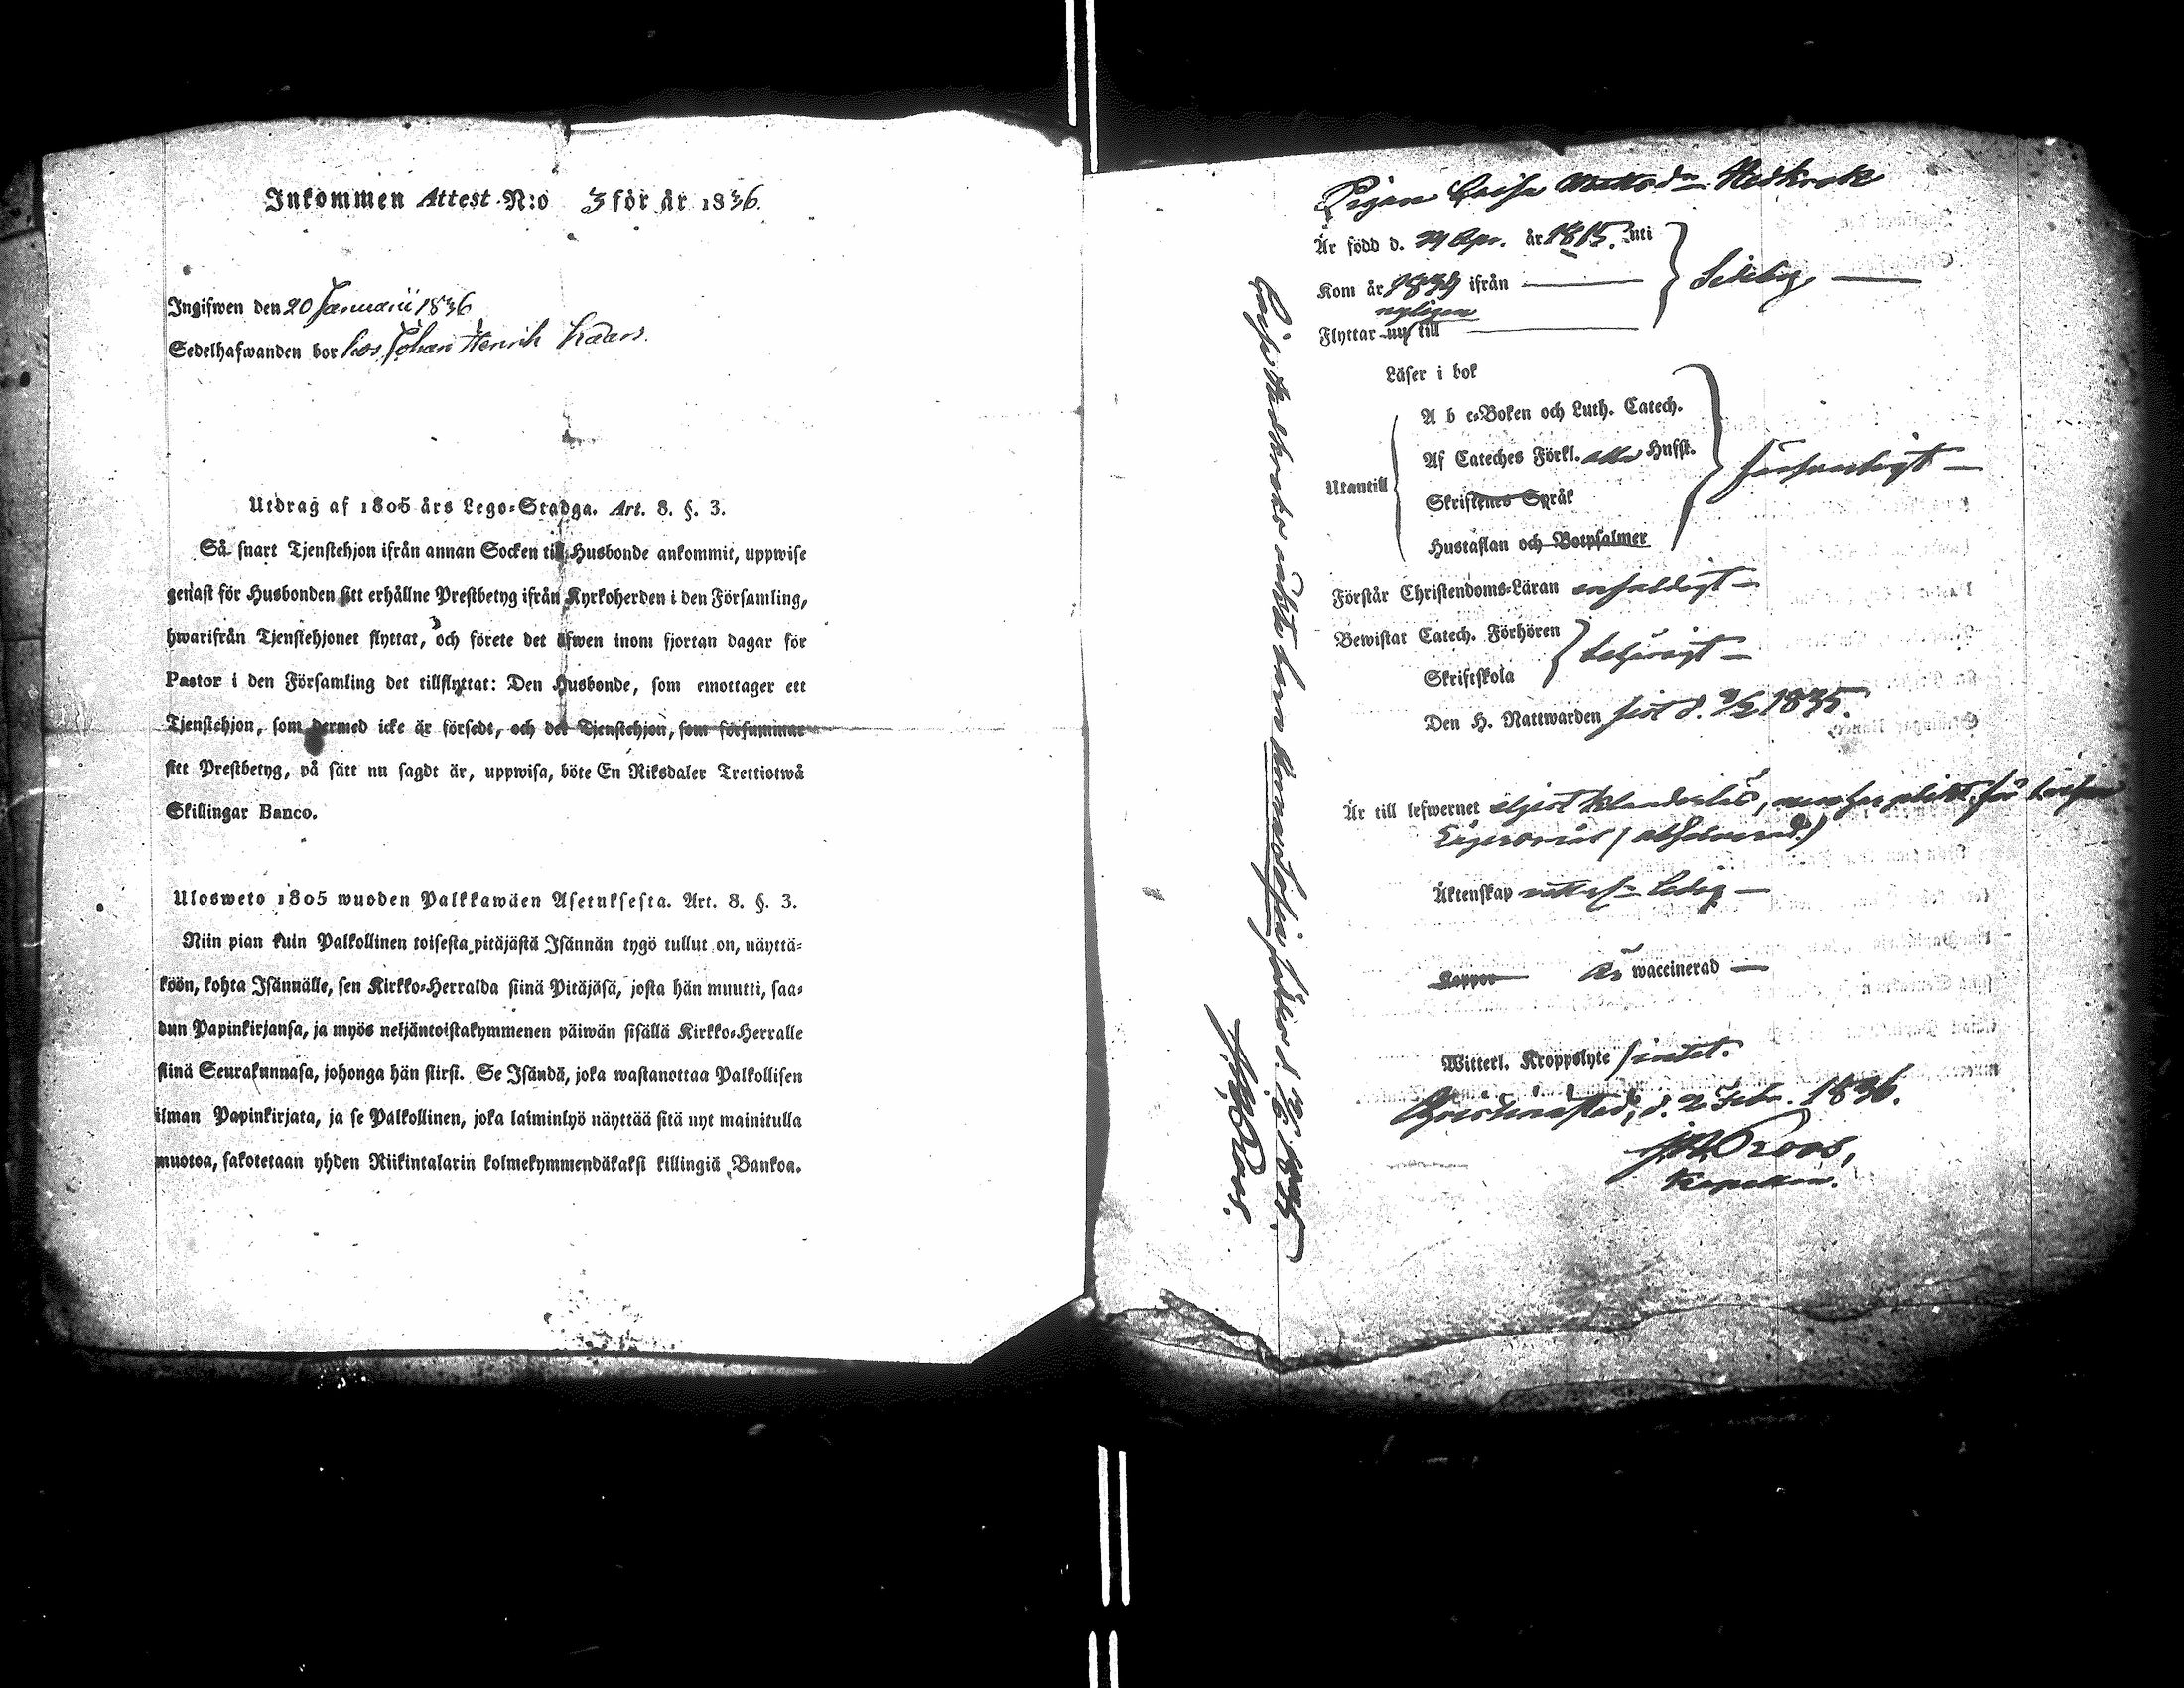 Inkommen Attest N:o 3 för år 1836.
Ingifwen den 20 Januarii 1836
Sedelhafwanden bor hos Johan Henrik
Utdrag af 1805 års Lego-Stadga. Art. 8. §. 3.
Så snart Tjenstehjon ifrån annan Socken till Husbonde ankommit, uppwise
genast för Husbonden sitt erhållne Prestbetyg ifrån Kyrkoherden i den Församling,
hwarifrån Tjenstehjonet flyttat, och förete det äfwen inom fjortan dagar för
Pastor i den Församling det tillflyttat: Den Husbonde, som emottager ett
Tjenstehjon, som dermed icke är försedt, och det Tjenstehjon, som försummar
sitt Prestbetyg, på sätt nu sagdt är, uppwisa, böte En Riksdaler Trettiotwå
Skillingar Banco.
Ulosweto 1805 wuoden Palkkawäen Asetuksesta. Art. 8. §. 3.
Niin pian kuin Palkollinen toisesta pitäjästä Isännän tygö tullut on, näyttä-
köön, kohta Isännälle, sen Kirkko-Herralda siinä Pitäjäsä, josta hän muutti, saa-
dun Papinkirjansa, ja myös neljäntoistakymmenen päiwän sisällä Kirkko-Herralle
siinä Seurakunnasa, johonga hän siirsi. Se Isändä, joka wastanottaa Palkollisen
ilman Papinkirjata, ja se Palkollinen, joka laiminlyö näyttää sitä nyt mainitulla
muotoa, sakotetaan yhden Riikintalarin kolmekymmendäkaksi killingiä Bankoa.
Pigan Caisa Mattsdr Hedkrok
Är född d. 24 Apr. år 1815. uti
Kom år 1834 ifrån
Sideby
nyligen
Flyttar nu till
Läser i bok
A b c-Boken och Luth. Catech.
Af Cateches Förkl. alla Hufst.
Utantill
försvarligt
Skriftenes Språk
Hustaflan och Botpsalmer
Förstår Christendoms-Läran enfaldigt
Bewistat Catech. Förhören
behörigt
Skriftskola
Den H. Nattwarden sist d. 1835.
Är till lefwernet eljest klanderlös, men har plikt. för
Lägersmål (absolverad.)
Äktenskap ledig
Koppor är waccinerad
Witterl. Kroppslyte intet.
Christinæstad, d. 2 Febr. 1836.
J. Roos,
Kapellan.
Caisa Hedkroks oäkta barn Anna Sofia, föddes d. 1835.
Roos.